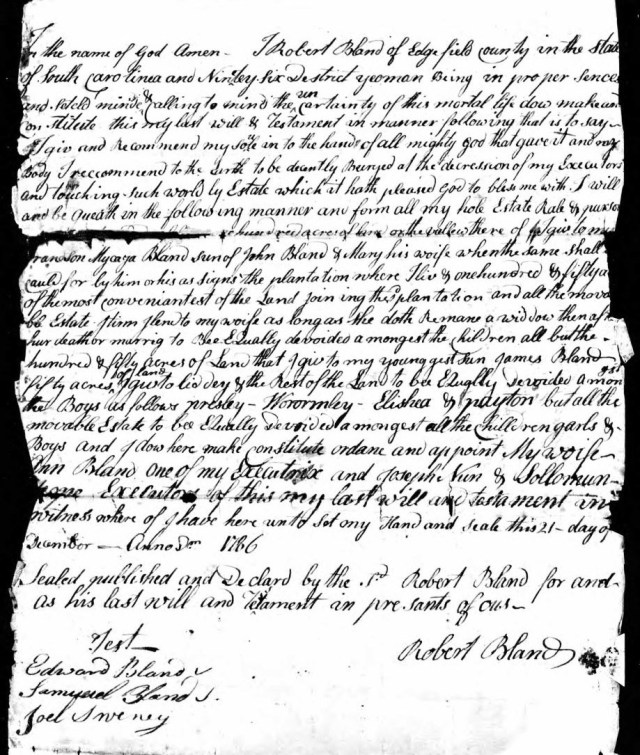 In the name of God Amen - I Robert Bland of Edgefield county in the State
of South Carolinea and Ninley Six District yeoman Being in proper Sences
and mind & Calling to mind the un certainty of this mortal life dow make and
Constitute this my last will & Testament in manner following that is to say -
I giv and Recommend my sole in to the hands of all mighty god that gave it and my
Body I reccommend to the Earth to be decently Buryed at the decression of my Executors
and touching such worldly Estate which it hath pleased God to bless me with. I will
and be queath in the following manner and form all my hole Estate Rale & purson
hundred acres of land or the vallew there of I giv to my
Granson Mycaga Bland sun of John Bland & Mary his woife when the same shall
cauld for by him or his as signs the plantation where I liv & one hundred & fifty a
of the most conveniantest of the Land join ing the plantation and all the mova
bb Estate I lend to my woife as long as she doth Remane a widdow then afte
hur death or marrig to Bee Equally devoided amongest the children all but the
hundred & fifty acres of Land that I giv to my younggest sun James Bland
& fifty acres of land I giv to & the Rest of the Land to bee Equglly devoided amongst
the Boys as follows presley - Woormley - Elishea & payton but all the
movable Estate to bee Equally devoided amongest all the Chilldren garls &
Boys and I dow here make constitute ordane and appoint My woife
Ann Bland one of my Executrix and Joseph Nun & Sollomun
Executors of this my last will and Testament in
witness where of I have here unto Set my Hand and seale this 21 - day of
December - Anno Dm 1786
Sealed published and Declard by the Sd Robert Bland for and
as his last will and Testament in presants of ous -
Test
Robert Bland
Edward Bland
Samyuel Bland
Joel Sweney